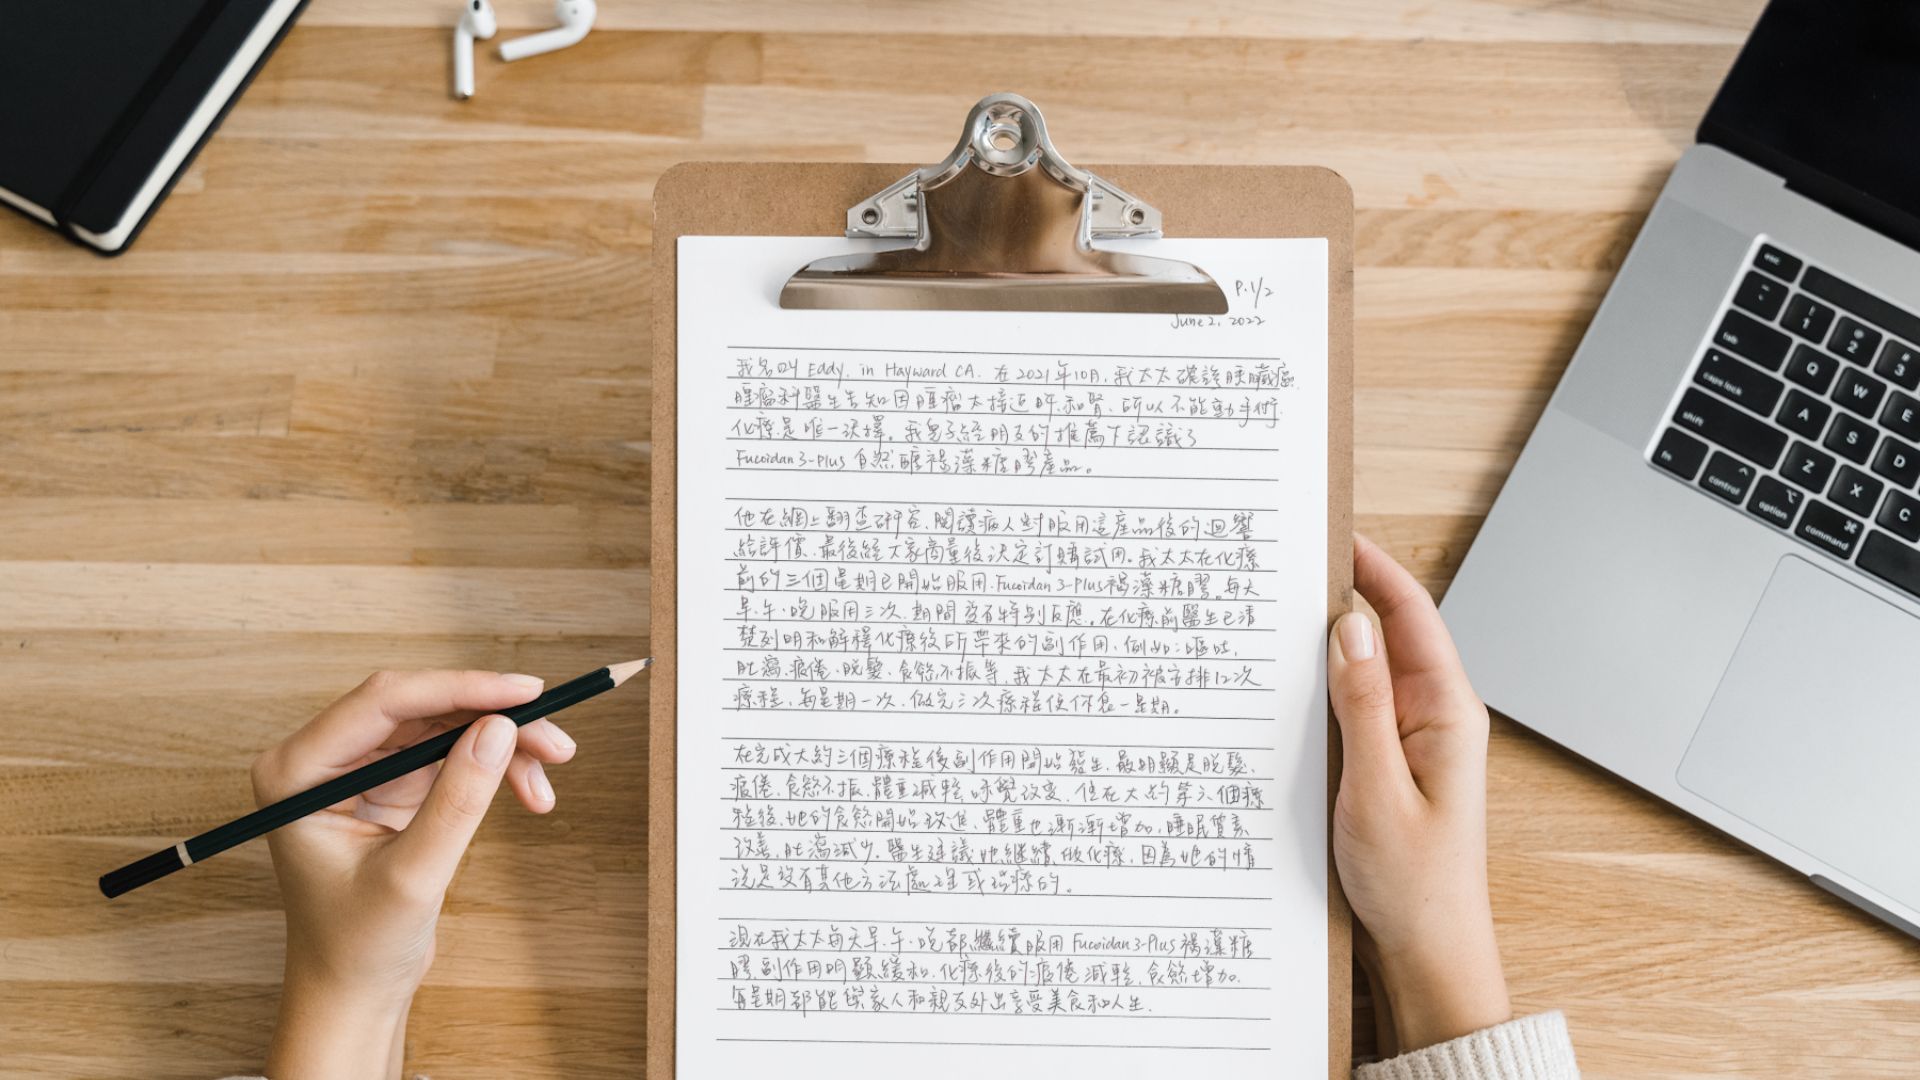 P.1/2
June 2, 2022
我名叫 Eddy. in Hayward CA. 在2021年10月,我太太確診胰臟癌.
腫瘤科醫生告知因腫瘤太接近肝和腎,所以不能動手術.
化療是唯一決擇。我兒子經朋友的推薦下認識了
Fucoidan 3-Plus 自然醣褐藻糖膠產品。
他在網上翻查研究、閱讀病人對服用這產品後的迴響
給評價、最後經大家商量後決定訂購試用。我太太在化療
前的三個星期已開始服用 Fucoidan 3-Plus褐藻糖膠。每天
早、午、晚服用三次、期間沒有特別反應。在化療前醫生已清
楚列明和解釋化療後所帶來的副作用、例如:嘔吐,
肚瀉、疲倦、脫髮、食慾不振等,我太太在最初被安排12次
療程,每星期一次、做完三次療程便休息一星期。
在完成大約三個療程後副作用開始發生,最明顯是脫髮、
疲倦、食慾不振、體重減輕、味覺改變,但在大約第六個療
程後、她的食慾開始改進、體重也漸漸增加,睡眠質素
改善,肚瀉減少,醫生建議她繼續做化療,因為她的情
況是沒有其他方法處理或治療的。
現在我太太每天早、午、晚都繼續服用 Fucoidan 3-Plus 褐藻糖
膠,副作用明顯緩和,化療後的疲倦減輕,食慾增加.
每星期都能與家人和親友外出享受美食和人生.
esc
tab
caps lock
shift
fn
control
option
command
! 1
2
3
Q
W
E
A
S
D
Z
X
C